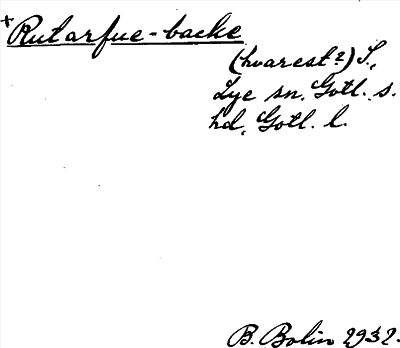 + Rutarfue-backe
(hvarest?) S.,
Lye sn. Gotl. s.
hd, Gotl. l.
B. Bolin 1932.